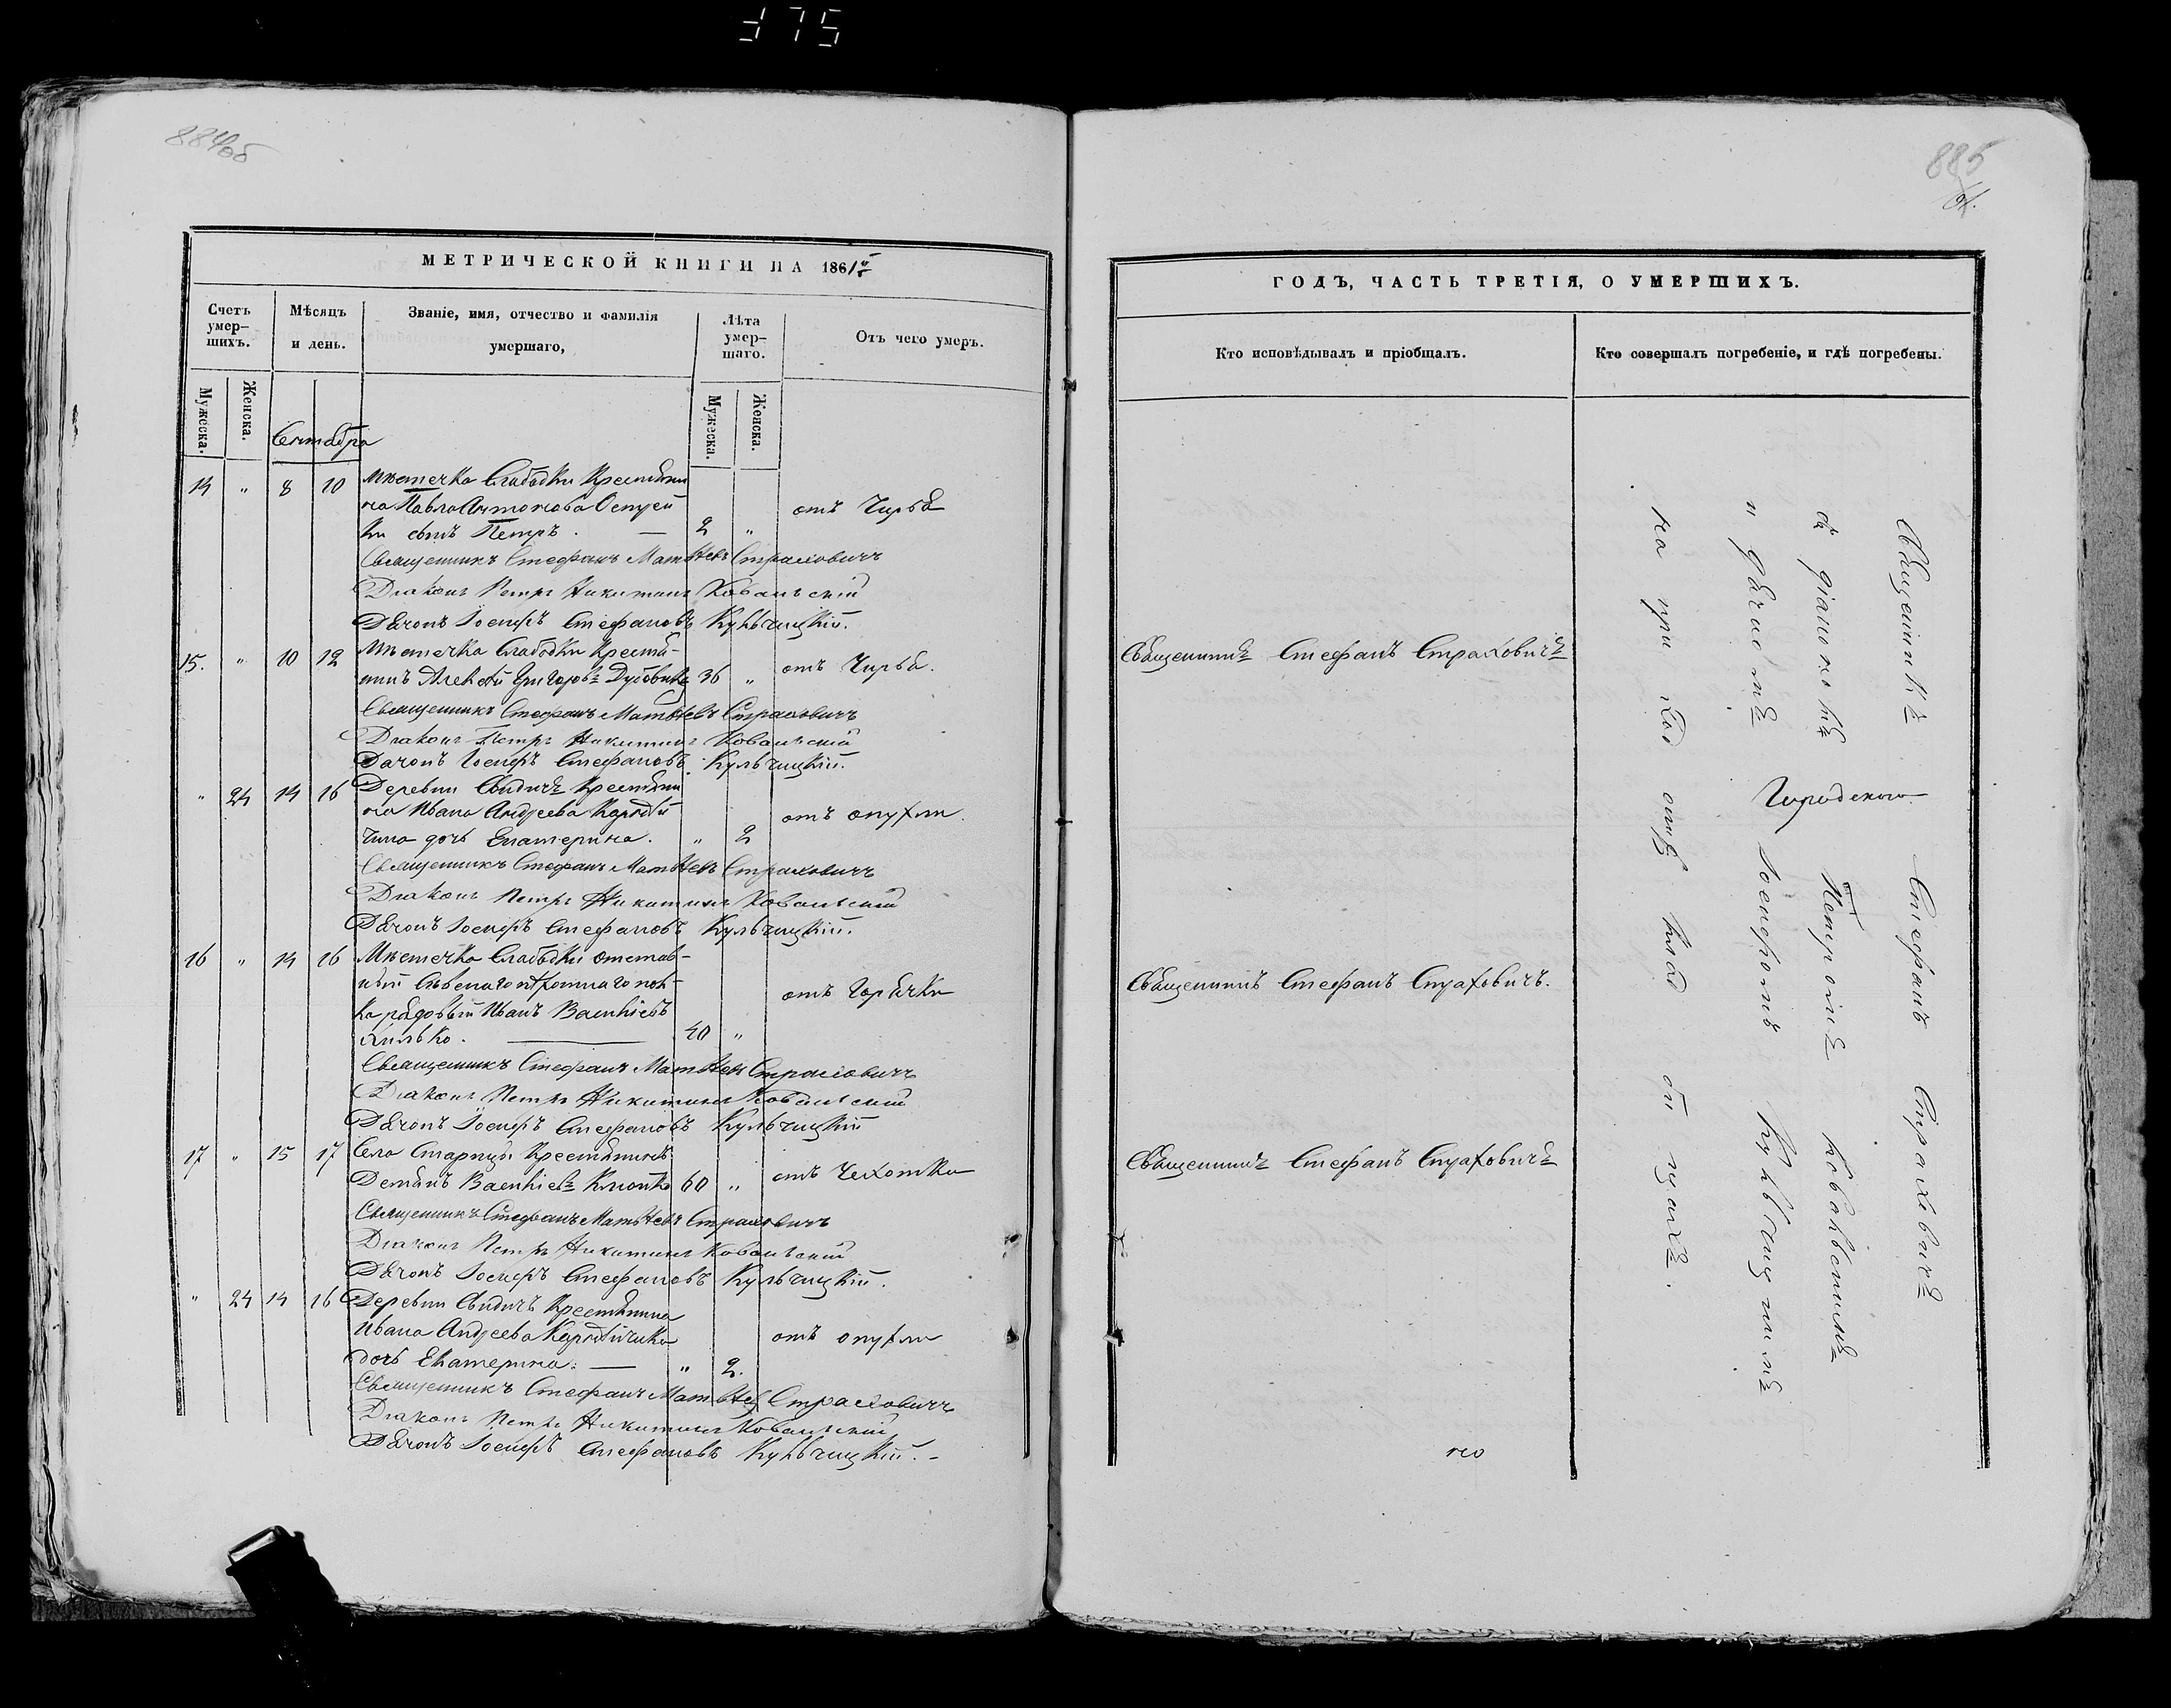 375
884об
885
МЕТРИЧЕСКОЙ КНИГИ НА 1861й
Счетъ умер-
шихъ.
Мѣсяцъ
и день.
Званіе, имя, отчество и фамилія
умершаго,
Лѣта
умер-
шаго.
Отъ чего умеръ.
Мужеска.
Женска.
Мужеска.
Женска.
Сентября
14 " 8 10 Мѣстечка Слабодки Крестьяни
на Павла Антонова
сынъ Петръ. — 2 " отъ Чирья
Священникъ Стефанъ Матвѣевъ Страховичъ
Діаконъ Петръ Никитинъ Ковальскій
Дьячокъ Іосифъ Стефановъ Кульчицкій.
15. " 10 12 Мѣстечка Слабодки Крестья-
нинъ Алексѣй Григорьевъ 36 " отъ Чирья.
Священникъ Стефанъ Матвѣевъ Страховичъ
Діаконъ Петръ Никитинъ Ковальскій
Дьячокъ Іосифъ Стефановъ Кульчицкій.
" 24 14 16 Деревни Свидичъ Крестьяни
на Ивана Андреева
дочь Екатерина. " 2 отъ опухли.
Священникъ Стефанъ Матвѣевъ Страховичъ
Діаконъ Петръ Никитинъ Ковальскій
Дьячокъ Іосифъ Стефановъ Кульчицкій.
16 " 14 16 Мѣстечка Слабодки отстав-
ный пол-
ка рядовый Иванъ Васильевъ
40 " отъ Горячки
Священникъ Стефанъ Матвѣевъ Страховичъ
Діаконъ Петръ Никитинъ Ковальскій
Дьячокъ Іосифъ Стефановъ Кульчицкій
17 " 15 17 Села Старицы Крестьянинъ
Демьянъ Васильевъ 60 " отъ Чехотки
Священникъ Стефанъ Матвѣевъ Страховичъ
Діаконъ Петръ Никитинъ Ковальскій
Дьячокъ Іосифъ Стефановъ Кульчицкій.
" 24 14 16 Деревни Свидичъ Крестьянина
Ивана Андреева
дочь Екатерина: — " 2. отъ опухли
Священникъ Стефанъ Матвѣевъ Страховичъ
Діаконъ Петръ Никитинъ Ковальскій
Дьячокъ Іосифъ Стефановъ Кульчицкій. -
ГОДЪ, ЧАСТЬ ТРЕТІЯ, О УМЕРШИХЪ.
Кто исповѣдывалъ и пріобщалъ.
Кто совершалъ погребеніе, и гдѣ погребены.
Священникъ Стефанъ Страховичъ
Священникъ Стефанъ Страховичъ.
Священникъ Стефанъ Страховичъ
Священникъ Стефанъ Страховичъ
съ діакономъ Петромъ Ковальскимъ
и дьячкомъ Іосифомъ Кульчицкимъ
на приходскомъ кладбищахъ.